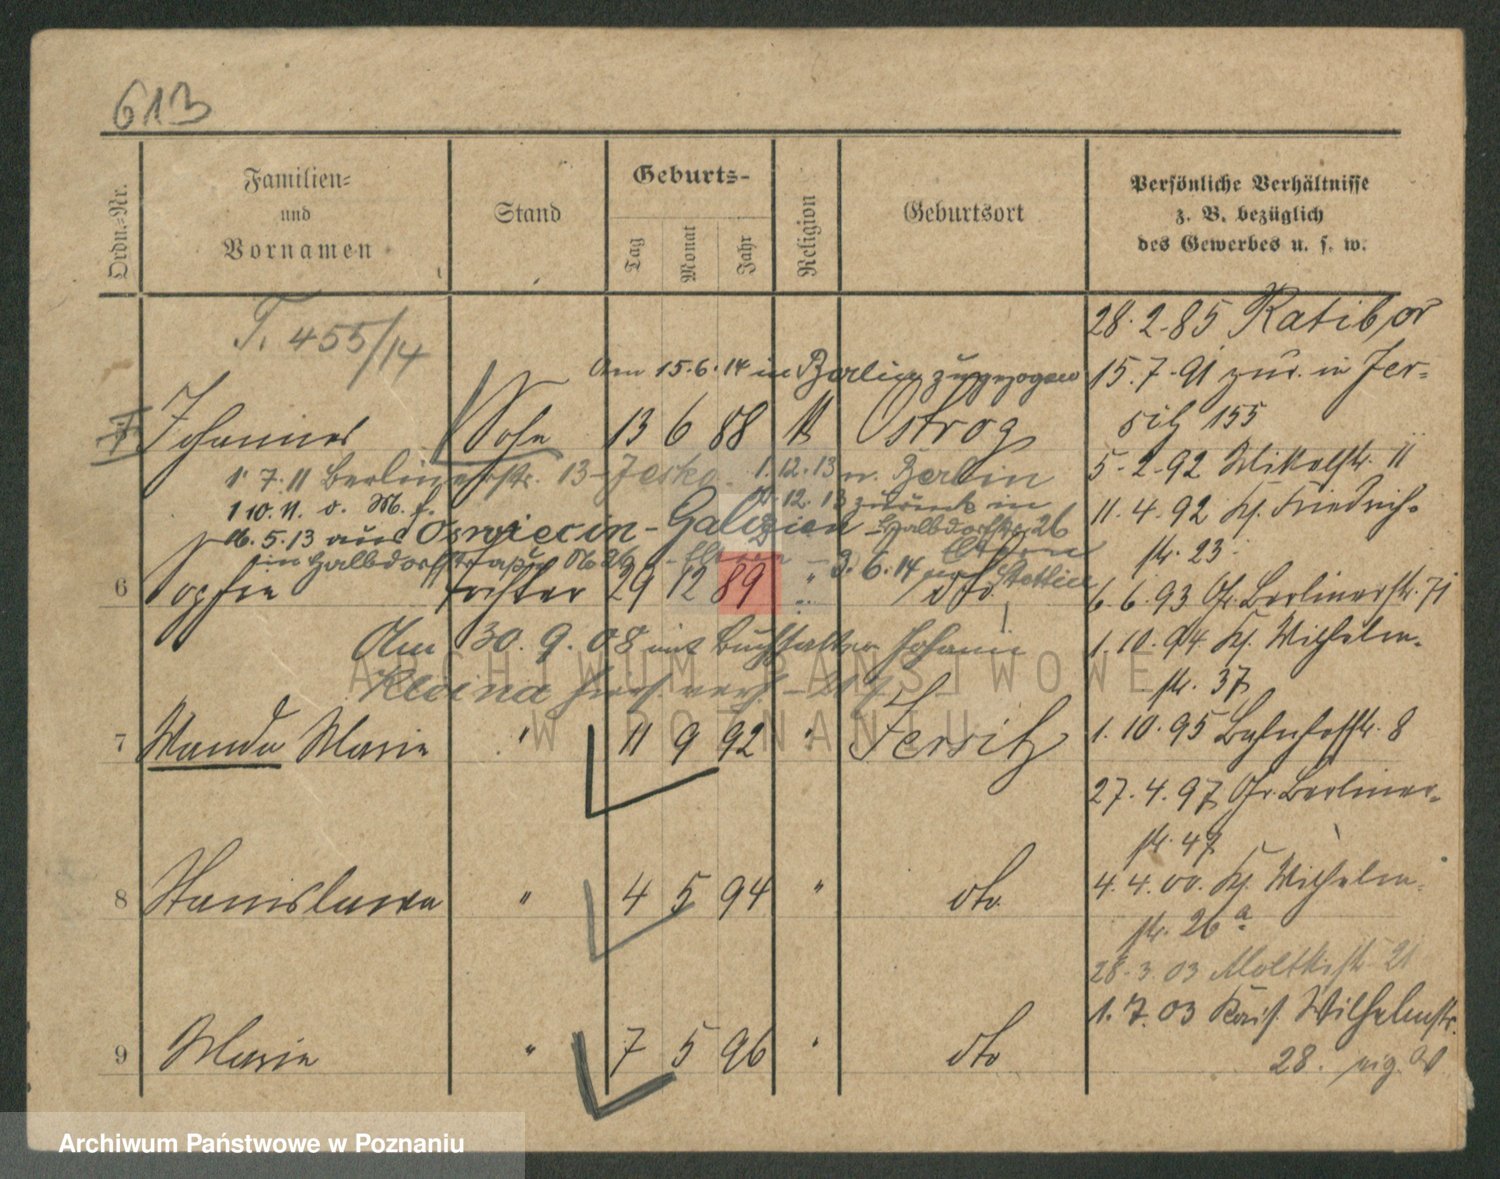 613
Ordn.-Nr.
Familien-
und
Vornamen
Stand
Geburts-
Tag
Monat
Jahr
Religion
Geburtsort
Persönliche Verhältnisse
z. B. bezüglich
des Gewerbes u. s. w.
T. 455/14
28.2.85 Ratibor
Am 15.6.14 in Berlin zugezogen
15.7.91 zur. in Jer-
sitz 155
Johannes Sohn 13 6 88 Ostrog
1.7.11 Berlinerstr. 13 1.12.13 n. Berlin
5.2.92
1.10.11 v. M. f. 12.13 zurück in
16.5.13 aus Oswiecin-Galizien Halbdorfstr. 26
11.4.92 Kl. Friedrich-
str. 23
in Halbdorfstraße No 26 Eltern 2.6.14 Stettin
6 Sophie Tochter 29 12 89 " dto.
6.6.93 Gr. Berlinerstr. 71
Am 30.9.08 mit Buchhalter Johann
1.10.94 Kl. Wilhelm-
str. 37
Kleina
7 Wanda Marie " 11 9 92 " Jersitz
1.10.95 Bahnhofstr. 8
27.4.97 Gr. Berliner-
str. 47
8 Stanislawa " 4 5 94 " dto.
4.4.00. Kl. Wilhelm-
str. 26a
28.3.03 Moltkestr. 21
1.7.03 Kais. Wilhelmstr.
28.
9 Marie " 7 5 96 " dto
ARCHIWUM PAŃSTWOWE
W POZNANIU
Archiwum Państwowe w Poznaniu